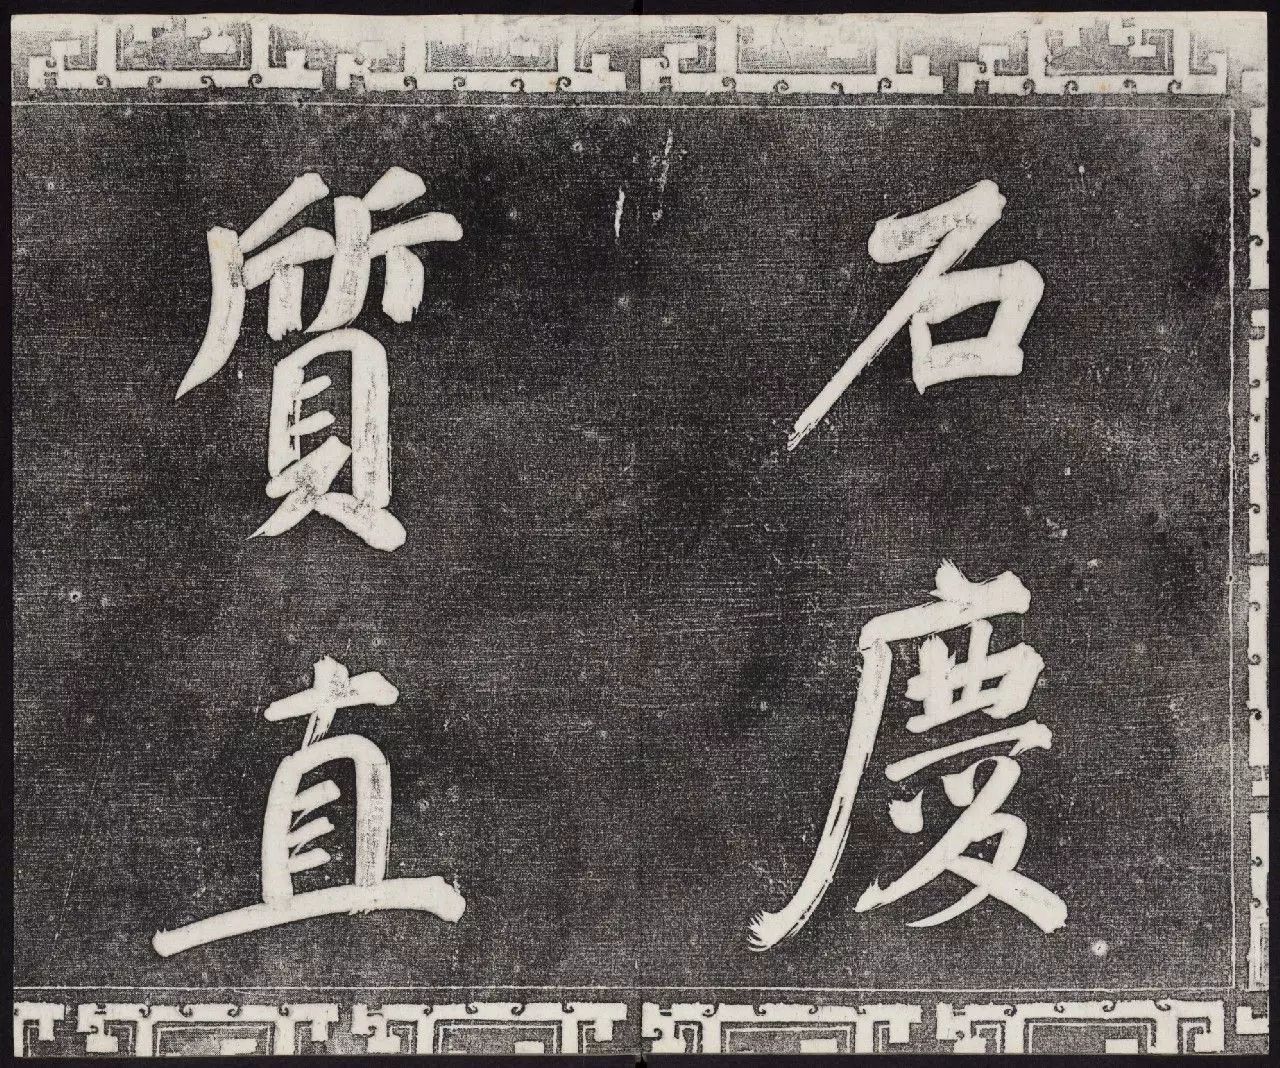 石慶
質直